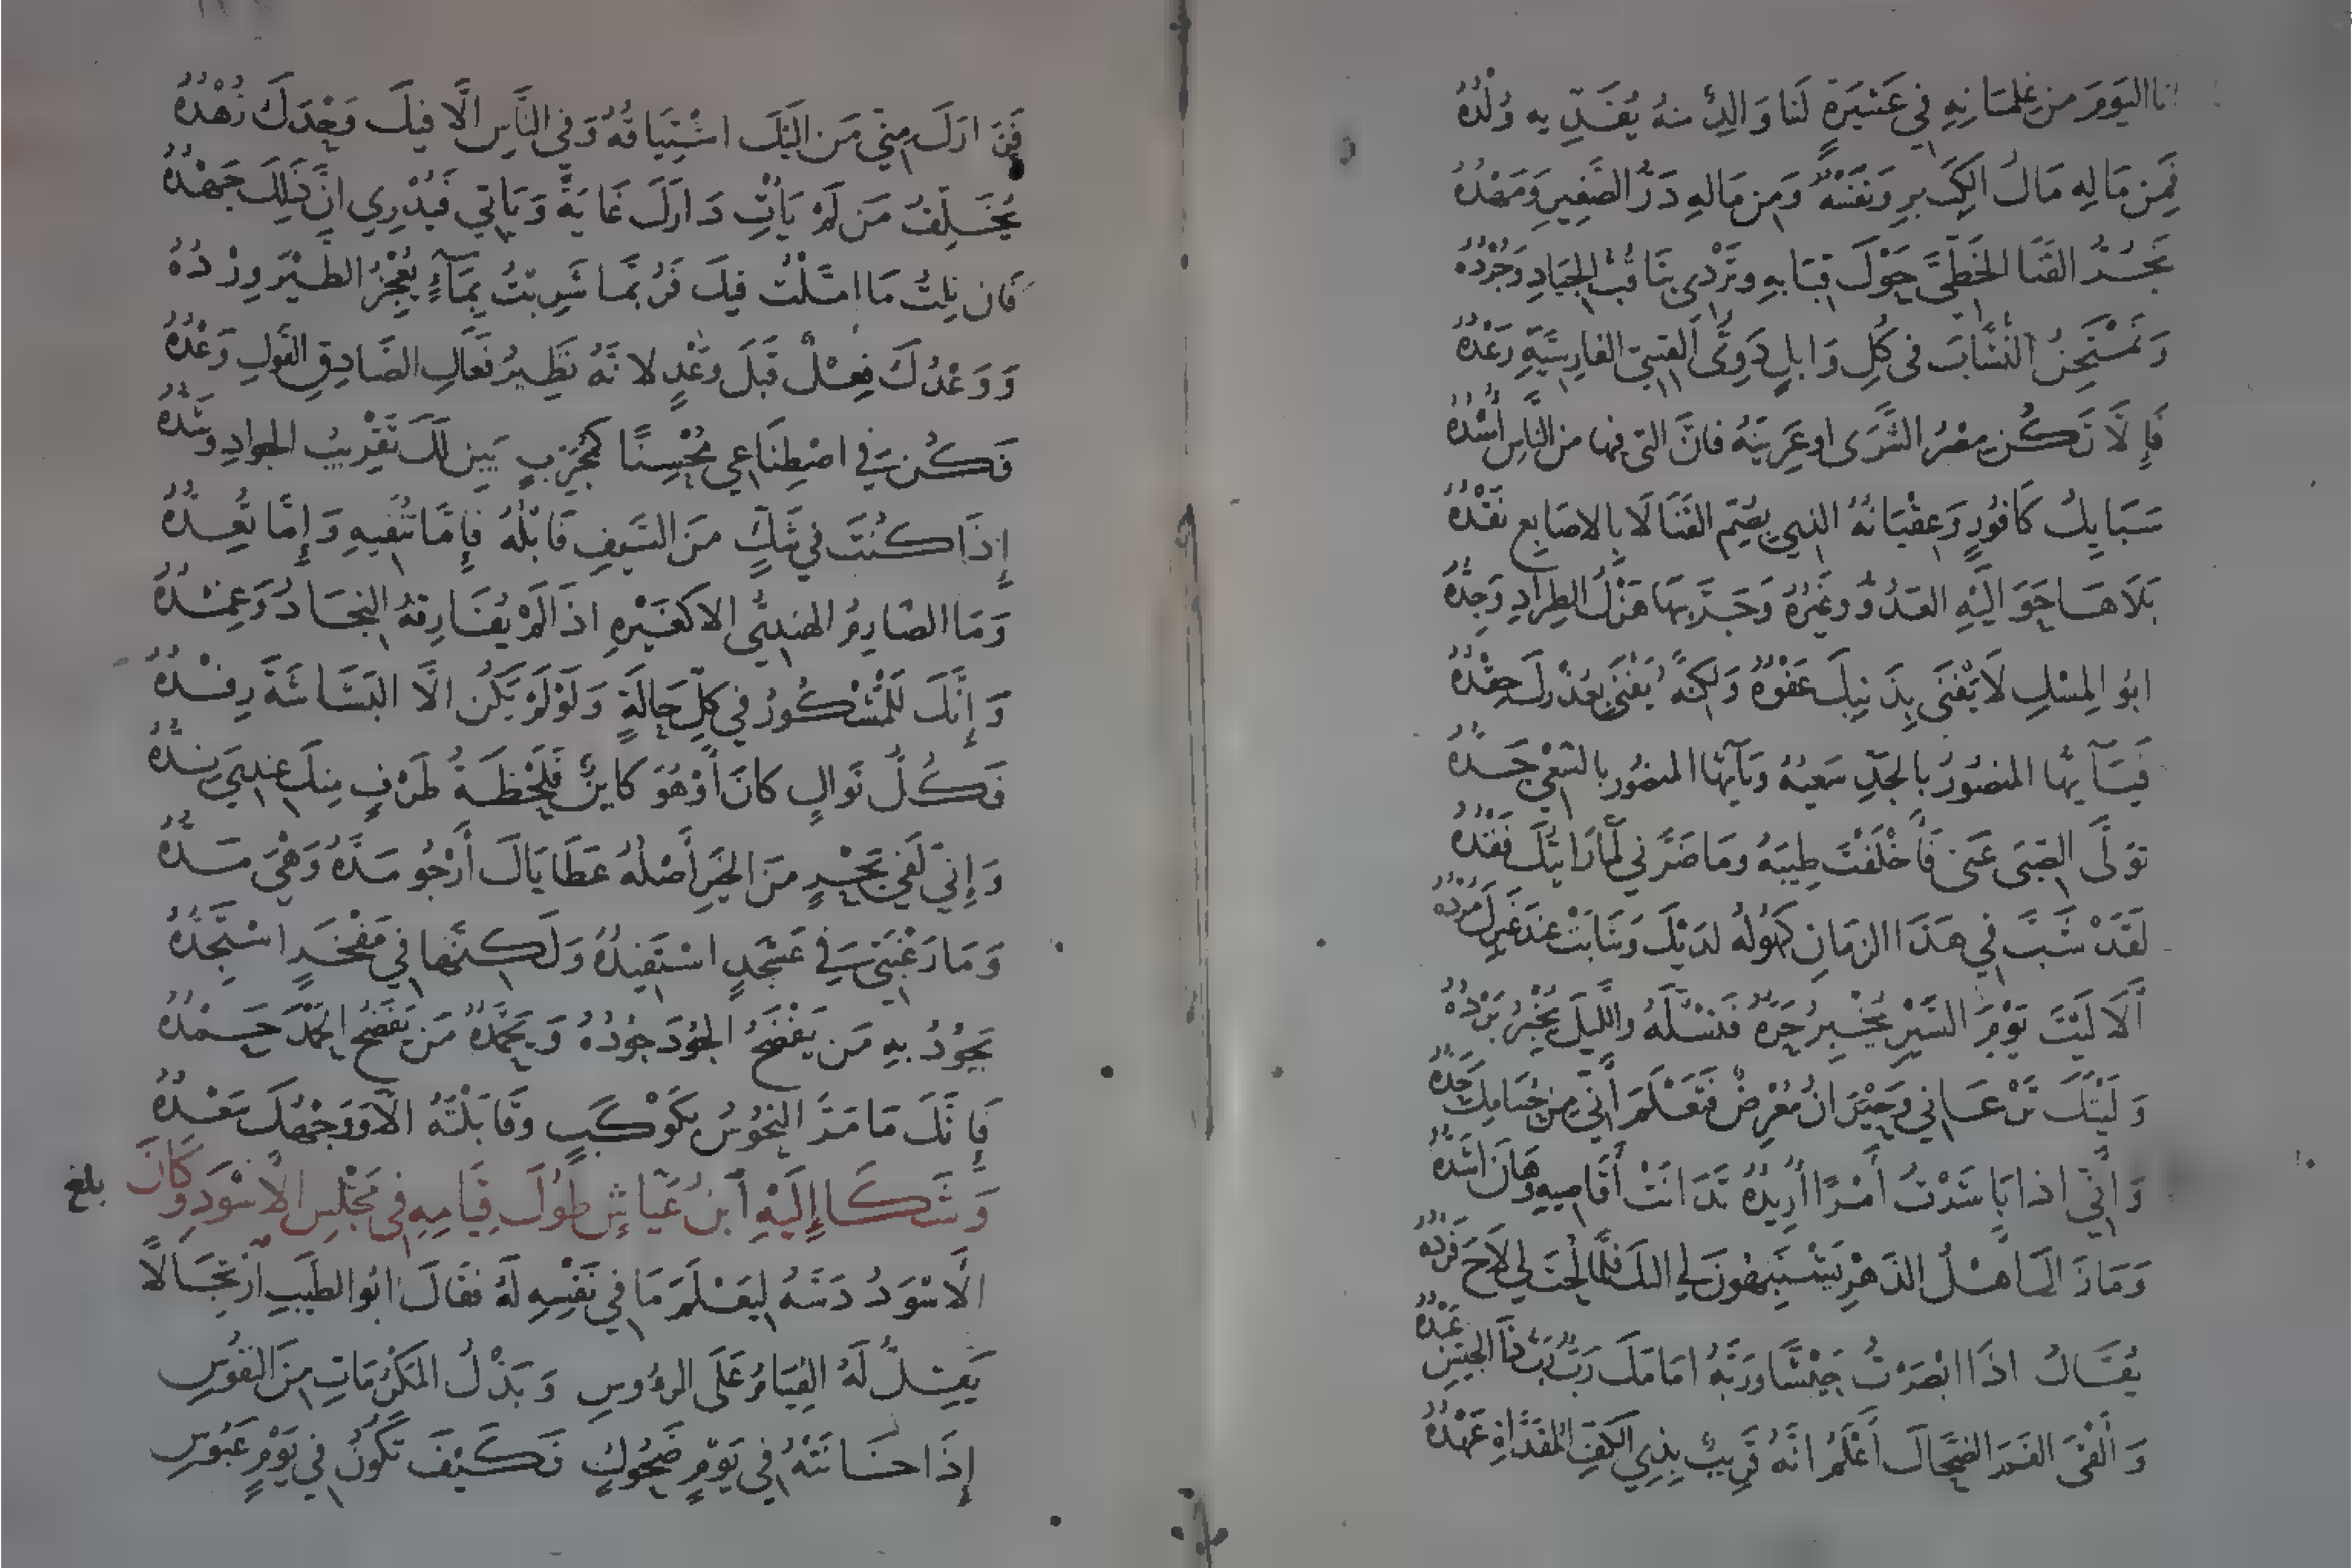 انا اليَوْمَ مِن غِلمَانِهِ فِي عَشِيرَةٍ لَنا وَالِدٌ مِنهُ يُفَدِّيهِ وُلْدُهُ
فَمِن مَالِهِ مَالُ الكَبيرِ وَنَفْسُهُ وَمِن مَالِهِ دَرُّ الصَّغِيرِ وَمَهْدُهُ
نَجُرُّ القَنَا الخَطِّيَّ حَوْلَ قِبَابِهِ وتَرْدِي بِنَا قُبُّ الجِيَادِ وَجُرْدُهُ
وَنَمْتَحِنُ النُّشَّابَ في كُلِّ وَابِلٍ دَوِيُّ القِسِيِّ الفارِسِيَّةِ رَعْدُهُ
فَإِلَّا تَكُن مِصْرُ الشَّرَى او عَرِينَهُ فانَّ التي فيها من النّاسِ أُسْدُهُ
سَبَايِكُ كَافُورٍ وَعِقْيَانُهُ الذي بِصُمِّ القَنَا لَا بِالاصَابِعِ نَقْدُهُ
بَلَاهَا حَوَالَيْهِ العَدُوُّ وغَيْرُهُ وَجَرَّبَهَا هَزْلُ الطِرادِ وَجِدُّهُ
ابُو المِسْكِ لَا يَفْنَى بِذَنبِكَ عَفْوُهُ وَلكِنَّهُ يَفْنَى بِعُذْرِكَ حِقْدُهُ
فَيَآ أيُّها المنصُورُ بالجَدِّ سَعيُهُ ويَآ أيُّها المنصُورُ بالسَّعْيِ جَدُّهُ
تَوَلَّى الصِّبَى عَنّي فَأَخْلَفْتَ طِيبَهُ ومَا ضَرَّني لمَّا رَايتُكَ فَقْدُهُ
لَقَدْ شَبَّ فِي هَذَا الزمَانِ كُهُولُهُ لدَيْكَ وَشَابَتْ عِندَ غَيرِكَ مُرْدُهُ
أَلَا لَيْتَ يَوْمَ السَّيْرِ يُخْبِرُ حَرُّهُ فَتَسْئَلَهُ واللَّيلَ يُخْبِرُ بَرْدُهُ
وَلَيْتَكَ تَرْعَاني وحَيْرَانُ مُعْرِضٌ فَتَعْلَمَ أَنّي مِن حُسَامِكَ حَدُّهُ
وَأنّي اذا بَاشَرْتُ أَمْرًا أُرِيدُهُ تَدَانَتْ أَقَاصِيهِ وهَانَ اشَدُّهُ
وَمَا زَالَ اهْلُ الدَهْرِ يَشْتَبِهُونَ لي اليكَ فلمَّا لُحْتَ لي لَاحَ فَرْدُهُ
يُقَالُ اذَا ابْصَرْتُ جَيْشًا وَرَبُّهُ امَامَكَ رَبٌّ رَبُّ ذَا الجَيْشِ عَبْدُهُ
وَأَلْقَى الفَمَ الضَحَّاكَ أَعْلَمُ انَّهُ قَرِيبٌ بِذِي الكَفِّ المُفَدَّاةِ عَهْدُهُ
فَزَارَكَ مِنّي مَن اليْكَ اشْتِيَاقُهُ وَفي النَّاسِ الَّا فِيكَ وَحْدَكَ زُهْدُهُ
يُخَلِّفُ مَن لَمْ يَأتِ دَارَكَ غَايَةً وَيَاتي فَيَدْرِي انَّ ذَلِكَ جَهْدُهُ
فَان نِلتُ مَا امَّلْتُ فِيكَ فَرُبَّمَا شَرِبْتُ بِمَآءٍ يُعْجِزُ الطَيْرَ وِرْدُهُ
وَوَعْدُكَ فِعْلٌ قَبْلَ وَعْدٍ لانَّهُ نَظِيرُ فَعَالِ الصَّادِقِ القَولِ وَعْدُهُ
فَكُن في اصْطِنَاعِي مُحْسِنًا كَمُجَرِّبٍ يَبِن لَكَ تَقْرِيبُ الجوادِ وشَدُّهُ
إِذَا كُنْتَ في شَكٍّ مِنَ السَيفِ فَابْلُهُ فَإِمَّا تُنَفِّيهِ وَإِمَّا تُعِدُّهُ
وَمَا الصَّارِمُ الهِندِيُّ الا كَغَيْرِهِ اذَا لَمْ يُفَارِقْهُ النِجَادُ وَغِمْدُهُ
وَإِنَّكَ لَلْمَشْكُورُ في كُلِّ حَالَةٍ وَلَوْ لَمْ يَكُن الَّا البَشَاشَةَ رِفْدُهُ
فَكُلُّ نَوَالٍ كَانَ أَوْ هُوَ كَاينٌ فَلَحْظَةُ طَرْفٍ مِنكَ عِندِيَ نِدُّهُ
وَإِنّي لَفِي بَحْرٍ مِنَ الخَيرِ أَصْلُهُ عَطَايَاكَ أَرْجُو مَدَّهُ وَهْيَ مَدُّهُ
وَمَا رَغْبَتِي في عَسْجَدٍ اسْتَفِيدُهُ وَلَكِنَّها فِي مَفْخَرٍ اسْتَجِدُّهُ
يَجُودُ بِهِ مَن يَفْضَحُ الجُودَ جُودُهُ وَيَحْمَدُهُ مَن يَفْضَحُ الحَمْدَ حَمْدُهُ
فَإِنَّكَ مَا مَرَّ النُحُوسُ بِكَوْكَبٍ وقَابَلْتَهُ الَّا وَوَجْهُكَ سَعْدُهُ
وَشَكَا إِلَيْهِ ابْنُ عَيَّاشٍ طُولَ قِيَامِهِ في مَجْلِسِ الاَسْوَدِ وكَانَ
بلغ
الَاسْوَدُ دَسَّهُ لِيَعْلَمَ مَا فِي نَفْسِهِ لَهُ فقَالَ ابُو الطَيِّبِ ارْتِجَالًا
يَقِلُّ لَهُ القِيَامُ عَلَى الرؤُوسِ وَبَذْلُ المَكْرُمَاتِ مِنَ النفُوسِ
إِذَا خَانَتْهُ فِي يَوْمٍ ضَحُوكٍ فَكَيْفَ تَكُونُ فِي يَوْمٍ عَبُوسِ